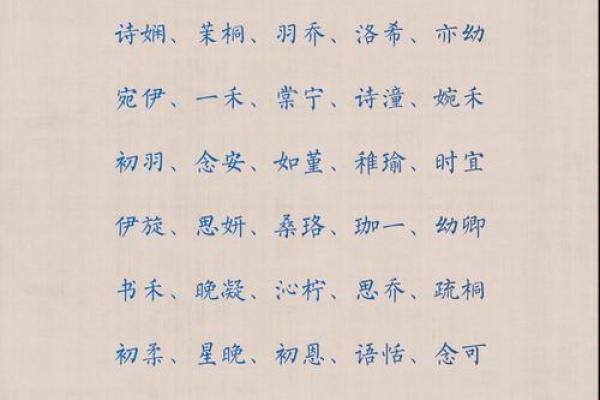 诗娴、茉桐、羽乔、洛希、亦幼
宛伊、一禾、棠宁、诗潼、婉禾
初羽、念安、如堇、稚瑜、时宜
伊旋、思妍、桑珞、珈一、幼卿
书禾、晚凝、沁柠、思乔、疏桐
初柔、星晚、初恩、语恬、念可